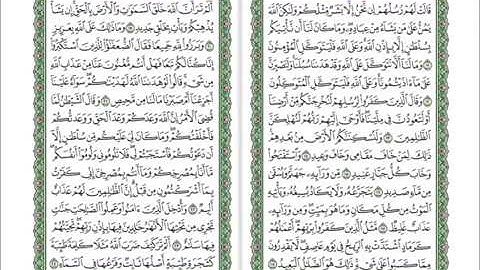 قَالَتْ لَهُمْ رُسُلُهُمْ إِن نَّحْنُ إِلَّا بَشَرٌ مِّثْلُكُمْ وَلَٰكِنَّ ٱللَّهَ
يَمُنُّ عَلَىٰ مَن يَشَآءُ مِنْ عِبَادِهِۦ وَمَا كَانَ لَنَآ أَن نَّأْتِيَكُم
بِسُلْطَٰنٍ إِلَّا بِإِذْنِ ٱللَّهِ وَعَلَى ٱللَّهِ فَلْيَتَوَكَّلِ ٱلْمُؤْمِنُونَ
١١ وَمَا لَنَآ أَلَّا نَتَوَكَّلَ عَلَى ٱللَّهِ وَقَدْ هَدَىٰنَا سُبُلَنَا وَلَنَصْبِرَنَّ
عَلَىٰ مَآ ءَاذَيْتُمُونَا وَعَلَى ٱللَّهِ فَلْيَتَوَكَّلِ ٱلْمُتَوَكِّلُونَ
١٢ وَقَالَ ٱلَّذِينَ كَفَرُوا۟ لِرُسُلِهِمْ لَنُخْرِجَنَّكُم مِّنْ أَرْضِنَآ
أَوْ لَتَعُودُنَّ فِى مِلَّتِنَا فَأَوْحَىٰٓ إِلَيْهِمْ رَبُّهُمْ لَنُهْلِكَنَّ
ٱلظَّٰلِمِينَ ١٣ وَلَنُسْكِنَنَّكُمُ ٱلْأَرْضَ مِنۢ بَعْدِهِمْ
ذَٰلِكَ لِمَنْ خَافَ مَقَامِى وَخَافَ وَعِيدِ ١٤ وَٱسْتَفْتَحُوا۟
وَخَابَ كُلُّ جَبَّارٍ عَنِيدٍ ١٥ مِّن وَرَآئِهِۦ جَهَنَّمُ وَيُسْقَىٰ
مِن مَّآءٍ صَدِيدٍ ١٦ يَتَجَرَّعُهُۥ وَلَا يَكَادُ يُسِيغُهُۥ وَيَأْتِيهِ
ٱلْمَوْتُ مِن كُلِّ مَكَانٍ وَمَا هُوَ بِمَيِّتٍ وَمِن وَرَآئِهِۦ
عَذَابٌ غَلِيظٌ ١٧ مَّثَلُ ٱلَّذِينَ كَفَرُوا۟ بِرَبِّهِمْ أَعْمَٰلُهُمْ
كَرَمَادٍ ٱشْتَدَّتْ بِهِ ٱلرِّيحُ فِى يَوْمٍ عَاصِفٍ لَّا يَقْدِرُونَ
مِمَّا كَسَبُوا۟ عَلَىٰ شَىْءٍ ذَٰلِكَ هُوَ ٱلضَّلَٰلُ ٱلْبَعِيدُ ١٨
أَلَمْ تَرَ أَنَّ ٱللَّهَ خَلَقَ ٱلسَّمَٰوَٰتِ وَٱلْأَرْضَ بِٱلْحَقِّ إِن يَشَأْ
يُذْهِبْكُمْ وَيَأْتِ بِخَلْقٍ جَدِيدٍ ١٩ وَمَا ذَٰلِكَ عَلَى ٱللَّهِ بِعَزِيزٍ
٢٠ وَبَرَزُوا۟ لِلَّهِ جَمِيعًا فَقَالَ ٱلضُّعَفَٰٓؤُا۟ لِلَّذِينَ ٱسْتَكْبَرُوٓا۟
إِنَّا كُنَّا لَكُمْ تَبَعًا فَهَلْ أَنتُم مُّغْنُونَ عَنَّا مِنْ عَذَابِ ٱللَّهِ
مِن شَىْءٍ قَالُوا۟ لَوْ هَدَىٰنَا ٱللَّهُ لَهَدَيْنَٰكُمْ سَوَآءٌ عَلَيْنَآ
أَجَزِعْنَآ أَمْ صَبَرْنَا مَا لَنَا مِن مَّحِيصٍ ٢١ وَقَالَ ٱلشَّيْطَٰنُ لَمَّا
قُضِىَ ٱلْأَمْرُ إِنَّ ٱللَّهَ وَعَدَكُمْ وَعْدَ ٱلْحَقِّ وَوَعَدتُّكُمْ
فَأَخْلَفْتُكُمْ وَمَا كَانَ لِىَ عَلَيْكُم مِّن سُلْطَٰنٍ إِلَّآ
أَن دَعَوْتُكُمْ فَٱسْتَجَبْتُمْ لِى فَلَا تَلُومُونِى وَلُومُوٓا۟ أَنفُسَكُم
مَّآ أَنَا۠ بِمُصْرِخِكُمْ وَمَآ أَنتُم بِمُصْرِخِىَّ إِنِّى كَفَرْتُ
بِمَآ أَشْرَكْتُمُونِ مِن قَبْلُ إِنَّ ٱلظَّٰلِمِينَ لَهُمْ عَذَابٌ
أَلِيمٌ ٢٢ وَأُدْخِلَ ٱلَّذِينَ ءَامَنُوا۟ وَعَمِلُوا۟ ٱلصَّٰلِحَٰتِ جَنَّٰتٍ
تَجْرِى مِن تَحْتِهَا ٱلْأَنْهَٰرُ خَٰلِدِينَ فِيهَا بِإِذْنِ رَبِّهِمْ تَحِيَّتُهُمْ
فِيهَا سَلَٰمٌ ٢٣ أَلَمْ تَرَ كَيْفَ ضَرَبَ ٱللَّهُ مَثَلًا كَلِمَةً طَيِّبَةً
كَشَجَرَةٍ طَيِّبَةٍ أَصْلُهَا ثَابِتٌ وَفَرْعُهَا فِى ٱلسَّمَآءِ ٢٤